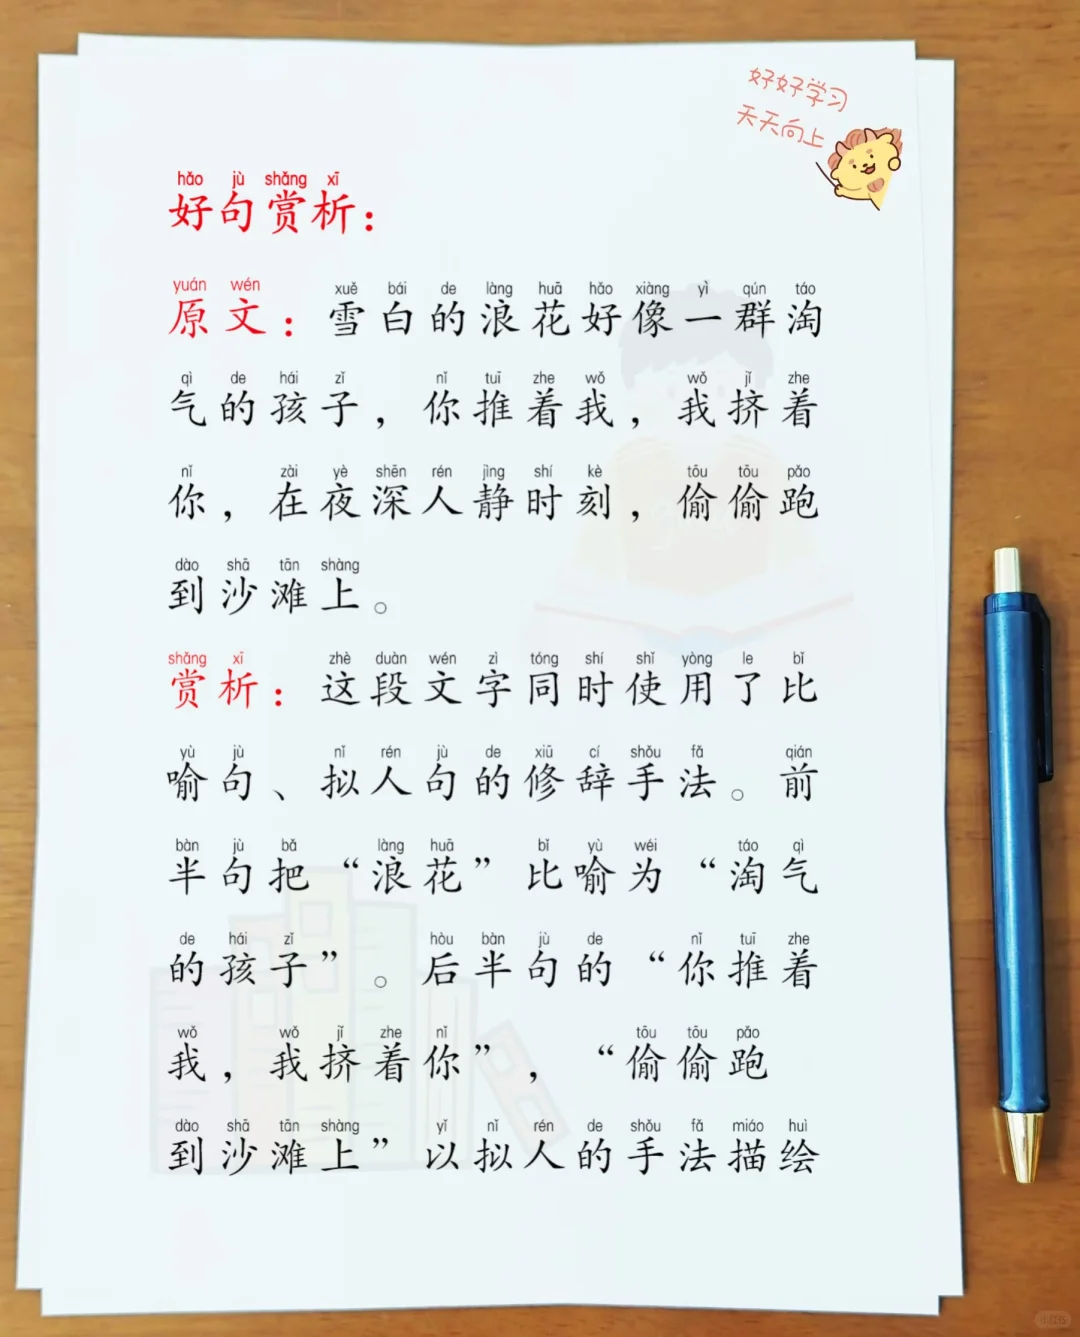 好好学习
天天向上
hǎo jù shǎng xī
好句赏析：
yuán wén xuě bái de làng huā hǎo xiàng yì qún táo
原文：雪白的浪花好像一群淘
qì de hái zǐ nǐ tuī zhe wǒ wǒ jǐ zhe
气的孩子，你推着我，我挤着
nǐ zài yè shēn rén jìng shí kè tōu tōu pǎo
你，在夜深人静时刻，偷偷跑
dào shā tān shàng
到沙滩上。
shǎng xī zhè duàn wén zì tóng shí shǐ yòng le bǐ
赏析：这段文字同时使用了比
yù jù nǐ rén jù de xiū cí shǒu fǎ qián
喻句、拟人句的修辞手法。前
bàn jù bǎ làng huā bǐ yù wéi táo qì
半句把“浪花”比喻为“淘气
de hái zǐ hòu bàn jù de nǐ tuī zhe
的孩子”。后半句的“你推着
wǒ wǒ jǐ zhe nǐ tōu tōu pǎo
我，我挤着你”，“偷偷跑
dào shā tān shàng yǐ nǐ rén de shǒu fǎ miáo huì
到沙滩上”以拟人的手法描绘